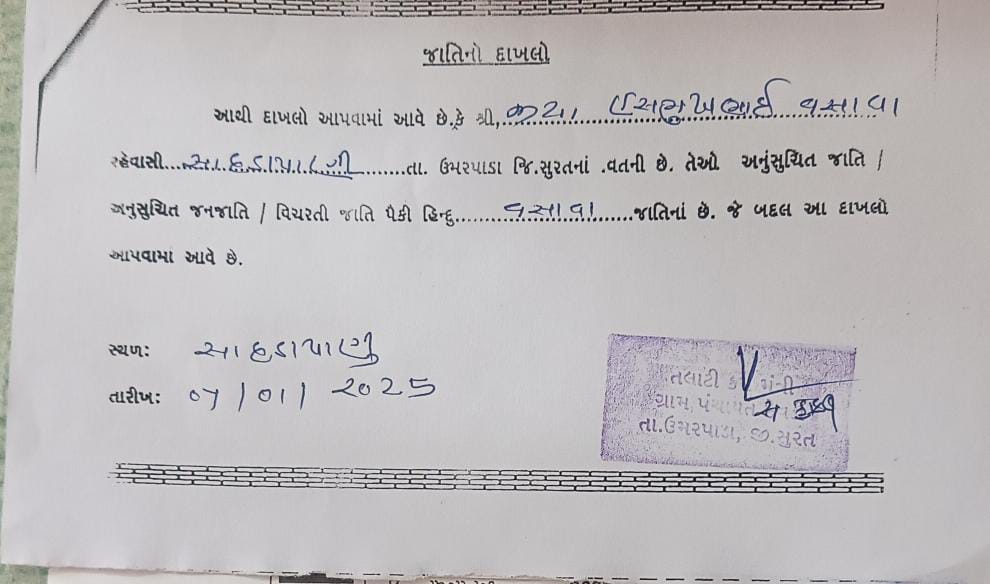 જાતિનો દાખલો
આથી દાખલો આપવામાં આવે છે,કે શ્રી,.......... હસમુખભાઈ વસાવા
રહેવાસી...સાદડાપાણી.........તા. ઉમરપાડા જિ.સુરતનાં .વતની છે. તેઓ અનુંસુચિત જાતિ /
અનુસુચિત જનજાતિ / વિચરતી જાતિ પૈકી હિન્દુ.......વસાવા......જાતિનાં છે. જે બદલ આ દાખલો
આપવામાં આવે છે.
સ્થળ: સાદડાપાણી
તારીખ: 07/01/2025
તલાટી કમ મંત્રી
ગ્રામ પંચાયત
તા.ઉમરપાડા, જી.સુરત